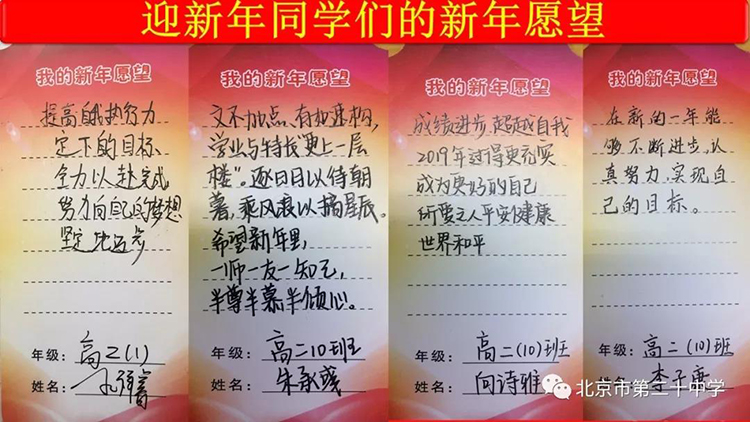 迎新年同学们的新年愿望
我的新年愿望
提高自我执行力
定下的目标、
全力以赴完成
努力向自己的梦想
坚定地迈步
年级：高二(1)
姓名：
我的新年愿望
文不加点、有如速构，
学业与特长"更上一层
楼"。逐日月以待朝
暮，乘风浪以摘星辰。
希望新年里，
一师一友一知己，
半尊半慕半倾心。
年级：高二10班
姓名：朱承彧
我的新年愿望
成绩进步，超越自我
2019年过得更充实
成为更好的自己
所爱之人平安健康
世界和平
年级：高二(10)班
姓名：向诗雅
我的新年愿望
在新的一年能
够不断进步，认
真努力，实现自
己的目标。
年级：高二(10)班
姓名：李子
北京市第二十中学